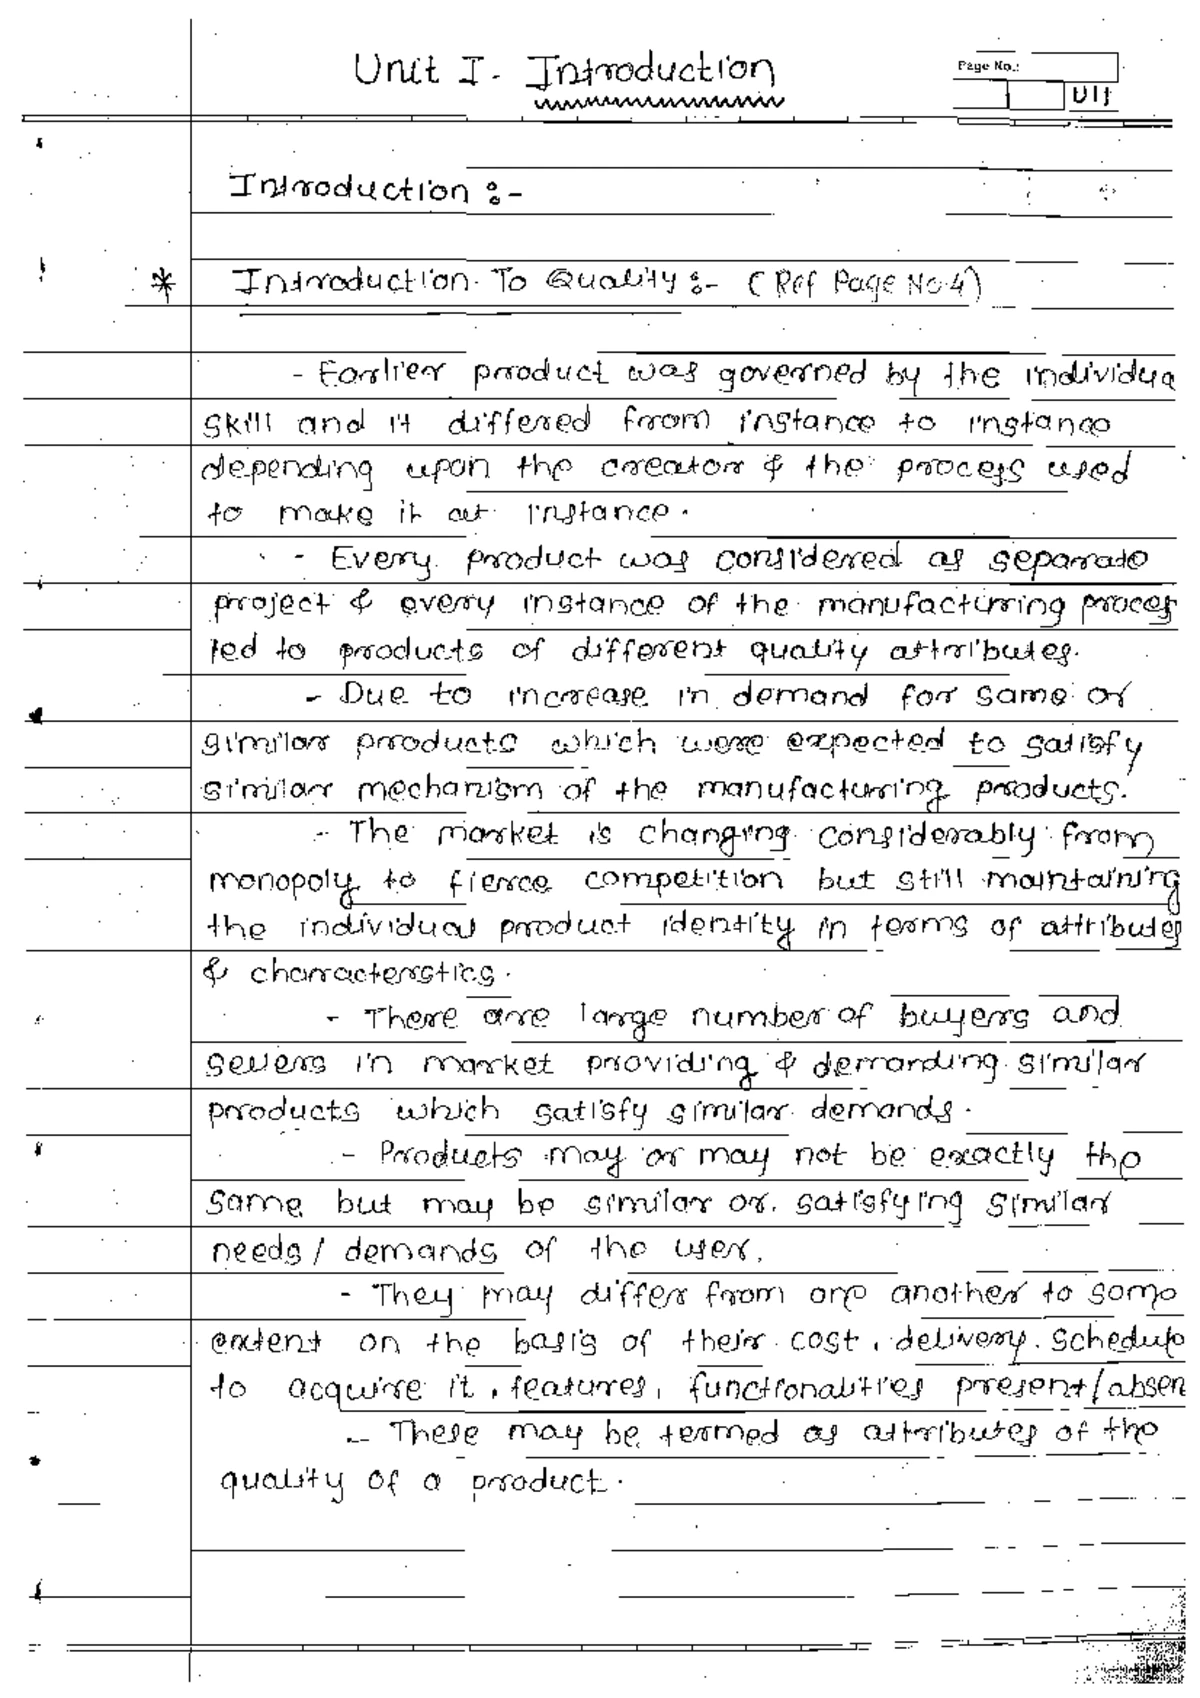 Unit I. Introduction
Page No.:
Introduction :-
* Introduction To Quality :- (Ref Page No.4)
- Earlier product was governed by the individua
skill and it differed from instance to instance
depending upon the creator & the process used
to make it at instance.
- Every product was considered as separate
project & every instance of the manufacturing proces
led to products of different quality attributes.
- Due to increase in demand for same or
similar products which were expected to satisfy
similar mechanism of the manufacturing products.
- The market is changing considerably from
monopoly to fierce competition but still maintaining
the individual product identity in terms of attributes
& characterstics.
- There are large number of buyers and
sellers in market providing & demanding similar
products which satisfy similar demands.
- Products may or may not be exactly the
same but may be similar or satisfying similar
needs / demands of the user.
- They may differ from one another to some
extent on the basis of their cost, delivery schedule
to acquire it, features, functionalities present/absen
- These may be termed as attributes of the
quality of a product.